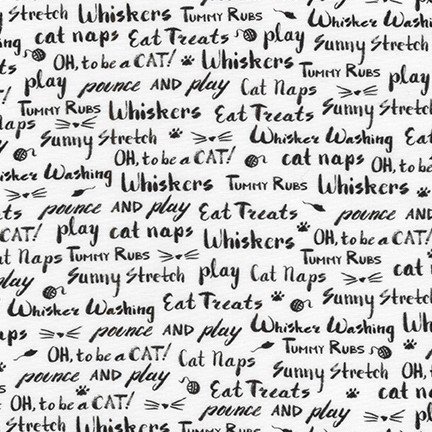 Stretch Whiskers TUMMY RUBS Whisker Washing
cat naps Eat Treats play Sunny Stretch
OH, to be a CAT! Whiskers TUMMY RUBS play
play pounce AND play Cat Naps
TUMMY RUBS Whiskers Eat Treats Sunny Stretch
Naps Sunny Stretch Whisker Washing Eat
OH, to be a CAT! cat naps OH, to be
Whisker Washing Whiskers TUMMY RUBS Whiskers
pounce AND play Eat Treats pounce AND
CAT! play cat naps Whiskers OH, to be a CAT!
Cat Naps TUMMY RUBS Whiskers TUMMY RUBS
play Sunny Stretch play Cat Naps cat
Whisker Washing Eat Treats Sunny Stretch
naps pounce AND play Whisker Washing Whis
OH, to be a CAT! Cat Naps TUMMY RUBS
pounce AND play Eat Treats Sunny Stretch cat nap
OH, to be a CAT! pounce AND play
Stretch Whiskers TUMMY RUBS Whisker Washing